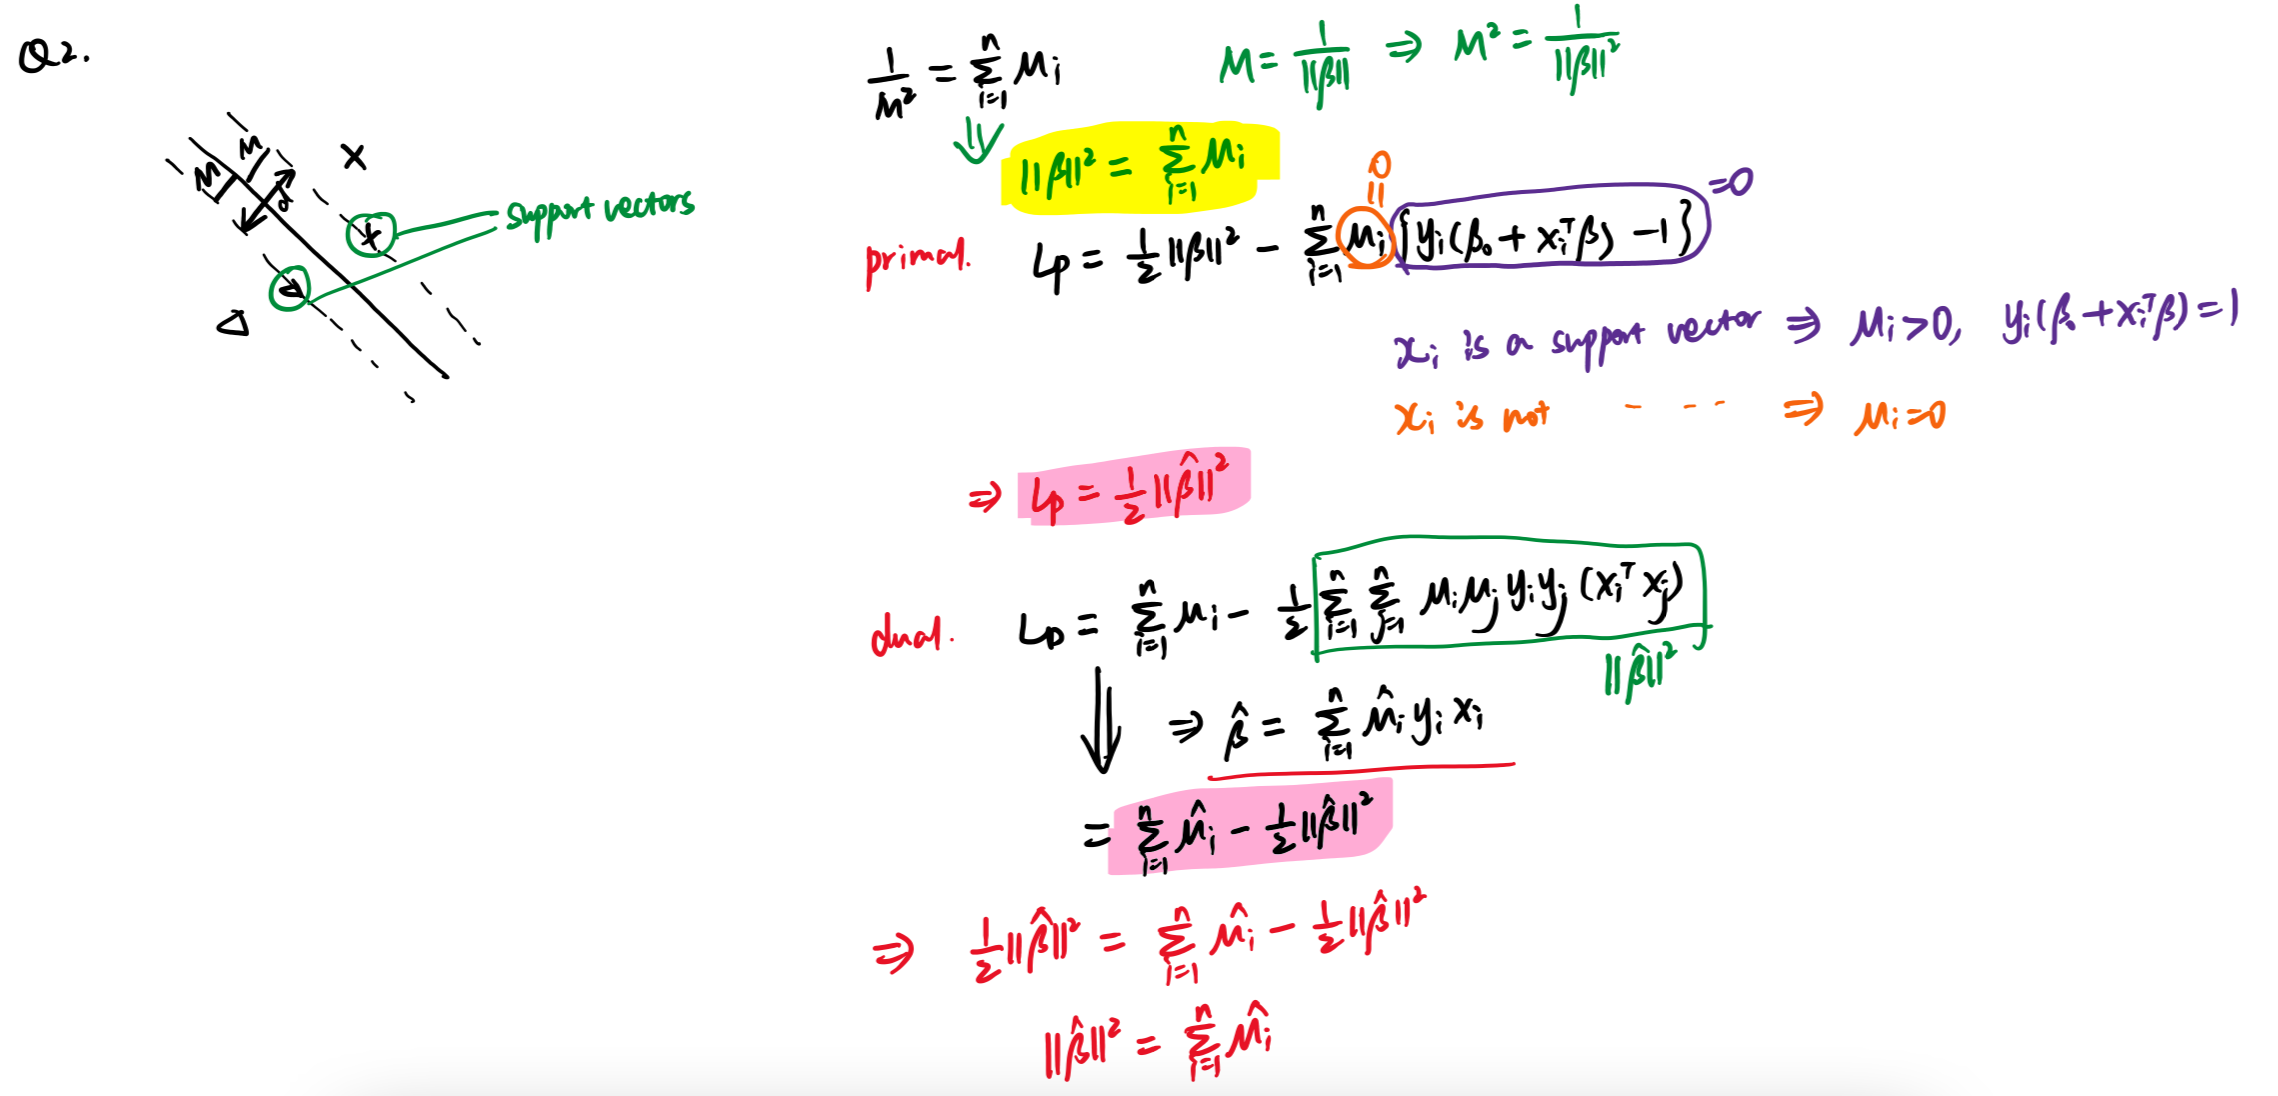 Q2.
M M d X
X support vectors
Δ
Δ
1/M² = Σ_{i=1}^{n} μ_i    M = 1/||β|| ⇒ M² = 1/||β||²
⇓ ||β||² = Σ_{i=1}^{n} μ_i
primal. L_P = 1/2 ||β||² - Σ_{i=1}^{n} μ_i {y_i(β_0 + x_i^T β) - 1} = 0
0 =
x_i is a support vector ⇒ μ_i > 0, y_i(β_0 + x_i^T β) = 1
x_i is not - - - - ⇒ μ_i = 0
⇒ L_P = 1/2 ||β̂||²
dual. L_D = Σ_{i=1}^{n} μ_i - 1/2 Σ_{i=1}^{n} Σ_{j=1}^{n} μ_i μ_j y_i y_j (x_i^T x_j)
||β̂||²
⇓ ⇒ β̂ = Σ_{i=1}^{n} μ̂_i y_i x_i
= Σ_{i=1}^{n} μ̂_i - 1/2 ||β̂||²
⇒ 1/2 ||β̂||² = Σ_{i=1}^{n} μ̂_i - 1/2 ||β̂||²
||β̂||² = Σ_{i=1}^{n} μ̂_i